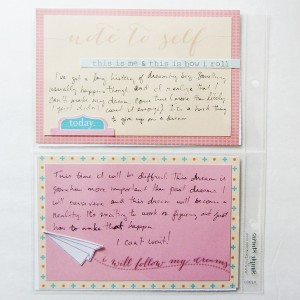 note to self
this is me & this is how i roll
I've got a long history of dreaming big. Something
usually happens though and I realise that I
can't make my dream come true
just didn't want it enough). It's a hard thing
to give up on a dream
today.
This time it will be difficult. This dream is
somehow more important than past dreams. I
will persevere and this dream will become a
reality. It's exciting to work on figuring out just
how to make that happen
I can't wait!
i will follow my dreams